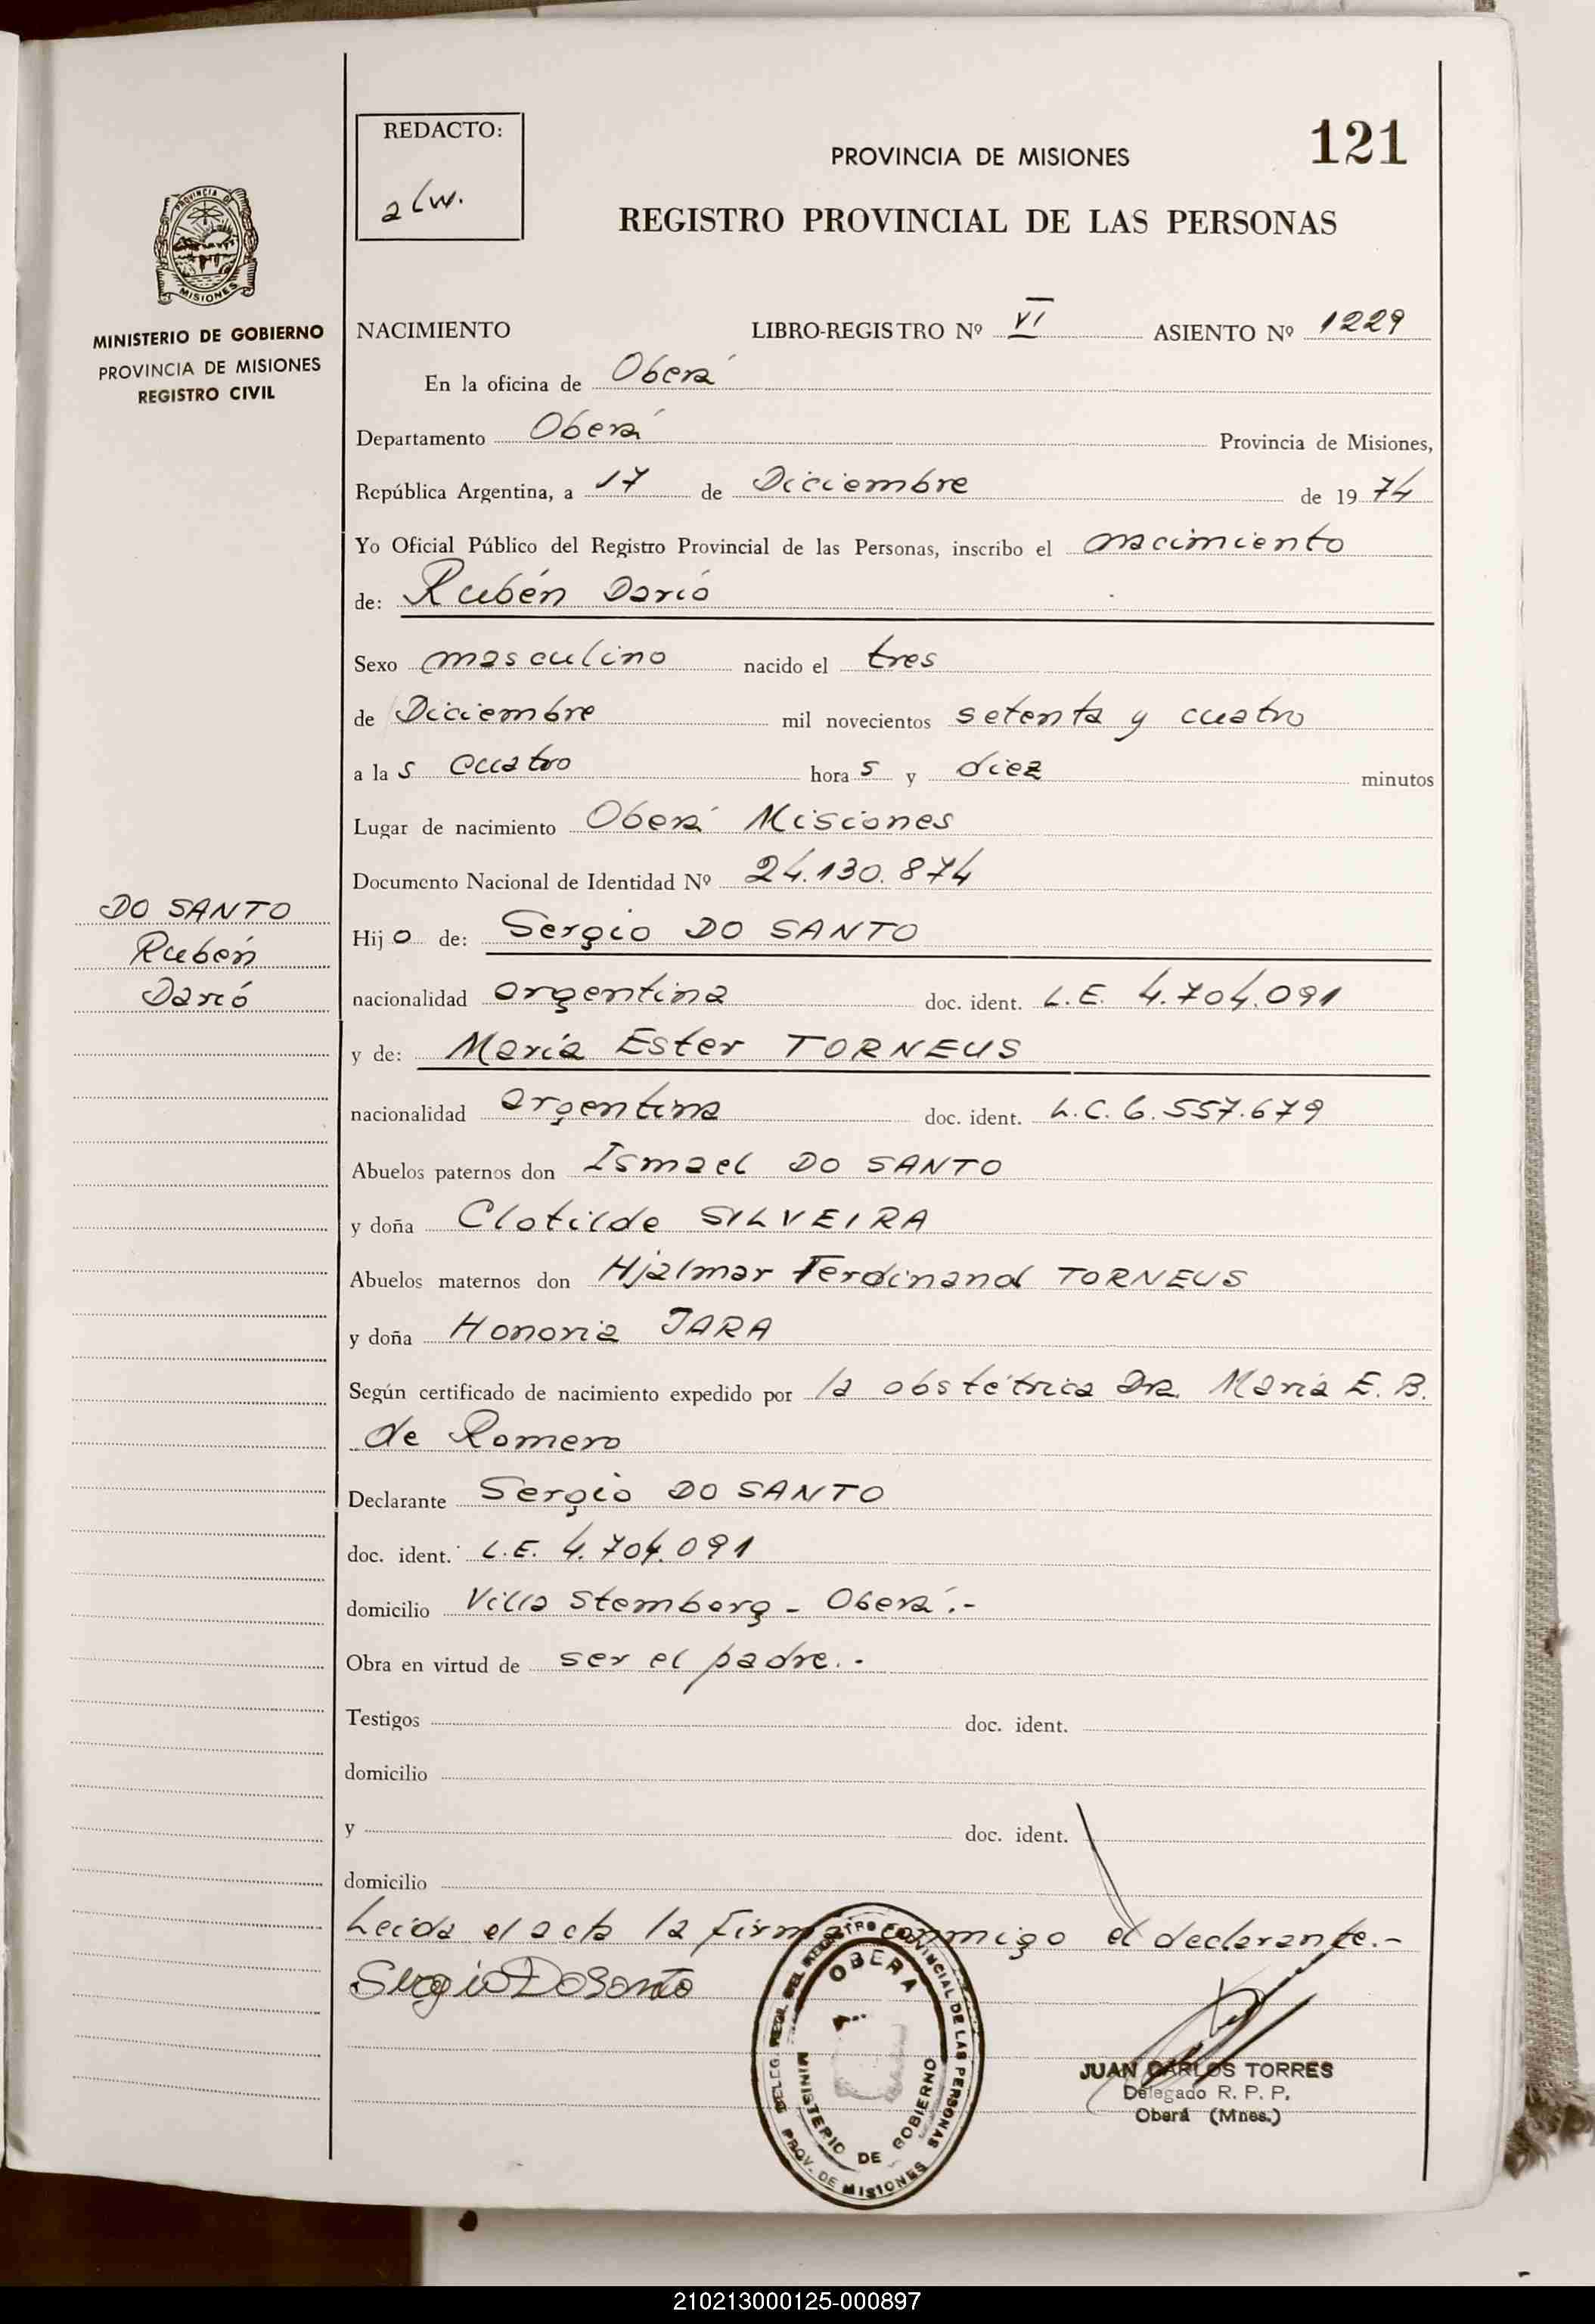 REDACTO:
alw.
PROVINCIA DE MISIONES
121
REGISTRO PROVINCIAL DE LAS PERSONAS
PROVINCIA DE
MISIONES
MINISTERIO DE GOBIERNO
PROVINCIA DE MISIONES
REGISTRO CIVIL
NACIMIENTO LIBRO-REGISTRO Nº VI ASIENTO Nº 1229
En la oficina de Oberá
Departamento Oberá Provincia de Misiones,
República Argentina, a 17 de Diciembre de 1974
Yo Oficial Público del Registro Provincial de las Personas, inscribo el nacimiento
de: Rubén Darió
Sexo masculino nacido el tres
de Diciembre mil novecientos setenta y cuatro
a las cuatro horas y diez minutos
Lugar de nacimiento Oberá Misiones
Documento Nacional de Identidad Nº 24.130.874
DO SANTO
Rubén
Darió
Hijo de: Sergio DO SANTO
nacionalidad argentina doc. ident. L.E. 4.704.091
y de: María Ester TORNEUS
nacionalidad argentina doc. ident. L.C. 6.557.679
Abuelos paternos don Ismael DO SANTO
y doña Clotilde SILVEIRA
Abuelos maternos don Hjalmar Ferdinand TORNEUS
y doña Honoria JARA
Según certificado de nacimiento expedido por la obstétrica Dra. María E. B.
de Romero
Declarante Sergio DO SANTO
doc. ident. L.E. 4.704.091
domicilio Villa Stemberg - Oberá.-
Obra en virtud de ser el padre.-
Testigos doc. ident.
domicilio
y doc. ident.
domicilio
Leida el acta la firma conmigo el declarante.-
Sergio DoSanto
DELEG. REGIL DEL REGISTRO PROVINCIAL DE LAS PERSONAS
OBERA
MINISTERIO DE GOBIERNO
PROV. DE MISIONES
JUAN CARLOS TORRES
Delegado R. P. P.
Oberá (Mnes.)
210213000125-000897